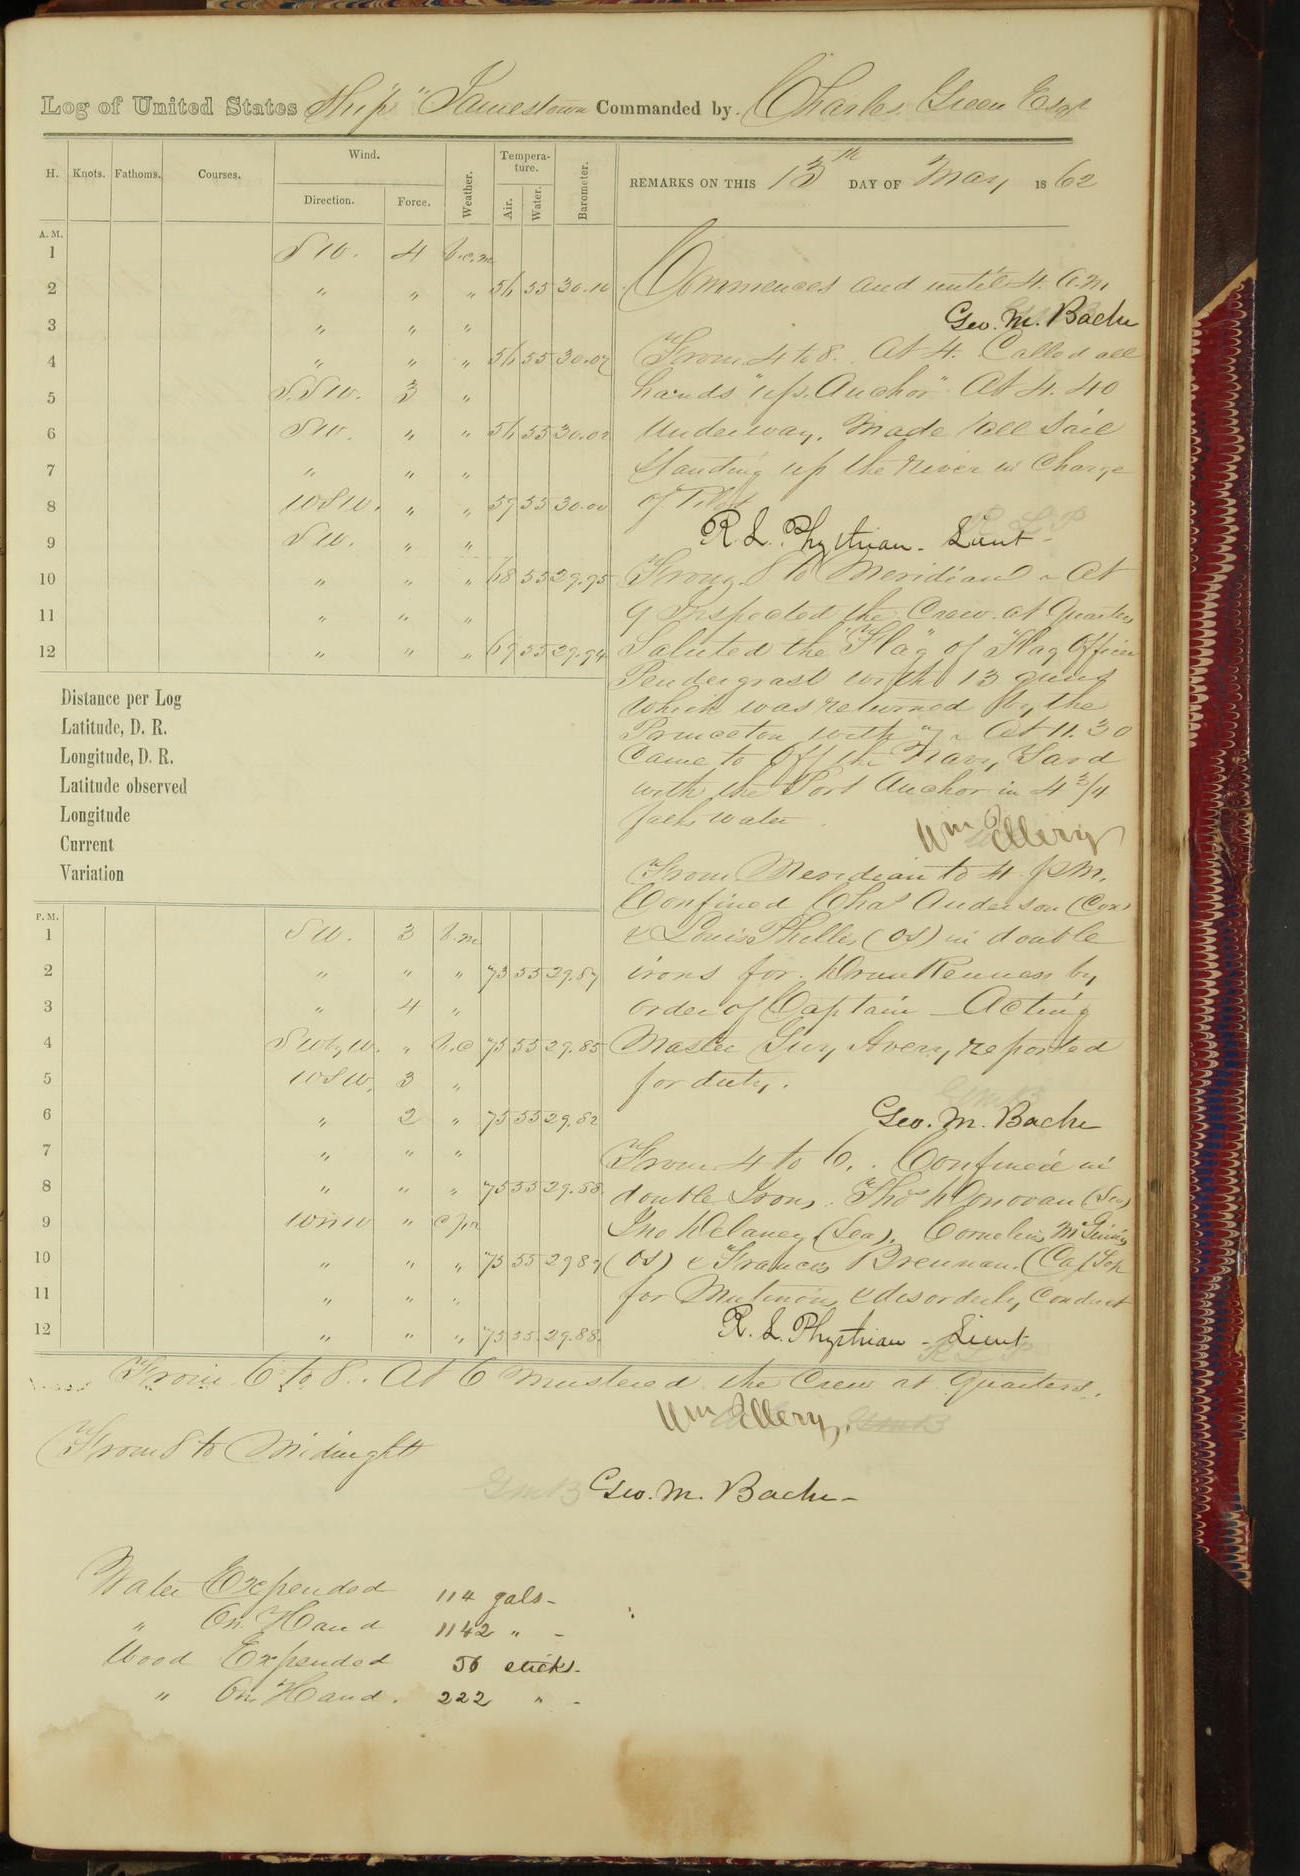 Log of United States Ship "Jamestown Commanded by. Charles Green Esqr
H. Knots. Fathoms. Courses. Wind. Direction. Force. Weather. Tempera-ture. Air. Water. Barometer.
REMARKS ON THIS 13th DAY OF May 1862
A.M.
1 SW. 4 b.c.m.
2 " " " 56 55 30.10
3 " " "
4 " " " 56 55 30.02
5 S.SW. 3 "
6 SW. " " 56 55 30.02
7 " " "
8 WSW. " " 59 55 30.00
9 SW. " "
10 " " " 68 55 29.95
11 " " "
12 " " " 69 55 29.94
Commences and until 4. a.m
Geo. M. Bache
From 4 to 8. At 4. Called all
hands "up Anchor" At 4.40
Underway. Made all Sail
Standing up the river in Charge
of Pilot
R. L. Phythian - Lieut -
From 8 to Meridian - At
9 Inspected the Crew at Quarters
Saluted the "Flag" of Flag Officer
Pendergrast with 13 guns
which was returned by the
Princeton with " - At 11.30
Came to off the Navy Yard
with the Port Anchor in 4 3/4
faths water
Wm Ellery
Distance per Log
Latitude, D. R.
Longitude, D. R.
Latitude observed
Longitude
Current
Variation
P.M.
1 SW. 3 b.m
2 " " " 73 55 29.87
3 " 4 "
4 SWbyW. " b.c 75 55 29.85
5 WSW. 3 "
6 " 2 " 75 55 29.82
7 " " "
8 " " " 75 55 29.88
9 WNW "
10 " " " 75 55 29 87
11 " " "
12 " " " 75 55 29.88.
From Meridian to 4 p.m.
Confined Chas Anderson (Cox)
& Louis (OS) in double
irons for Drunkenness by
order of Captain - Acting
Master Avery reported
for duty.
Geo. M. Bache
From 4 to 6. Confined in
double Irons. Thos Donovan (Sea)
Jno Delaney (Sea). Cornelius McGinnis
(OS) & Francis Brennan.
for Mutinous & disorderly Conduct
R. L. Phythian - Lieut
From 6 to 8. At 6 mustered the Crew at Quarters.
Wm Ellery.
From 8 to Midnight
Geo. M. Bache -
Water Expended 114 gals -
" On Hand 1142 " -
Wood Expended 56 sticks -
" On Hand. 222 " -